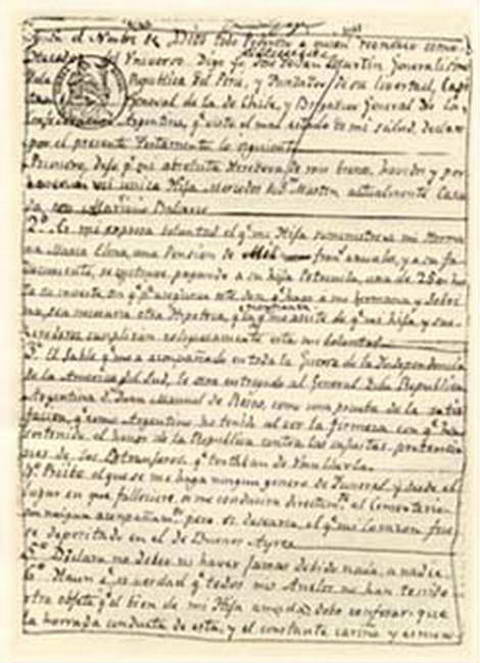 En el Nombre de Dios todo Poderoso a quien reconosco como
Hacedor del Universo: Digo yo José de San Martin, Generalisimo
de la Republica del Perú, y Fundador de su libertad, Capi
tan General de la de Chile, y Brigadier General de la
Confederacion Argentina, q.e visto el mal estado de mi salud, declaro
por el presente Testamento lo siguiente
Primero, dejo p.r mi absoluta Heredera de mis bienes, havidos y por
haver a mi unica Hija Mercedes de San Martin actualmente Casa
da con Mariano Balcarce
2.º Es mi expresa voluntad el q.e mi Hija suministre a mi Herma
na Maria Elena, una Pension de Mil fran.s anuales, y a su fa
llecimiento, se continue pagando a su hija Petronila, una de 250 has
ta su muerte sin q.e p.a asegurar este don q.e hago a mi hermana y Sobri
na, sea necesaria otra Hipoteca q.e la confianza q.e me asiste de q.e mi hija y sus
herederos cumpliran religiosamente esta mi voluntad.
3.º El Sable q.e me a acompañado en toda la Guerra de la Independencia
de la America del Sud, le sera entregado al General de la Republica
Argentina D.n Juan Manuel de Rosas, como una prueba de la satis
faccion, q.e como Argentino he tenido al ver la firmeza con q.e ha
sostenido el honor de la Republica contra las injustas preten
ciones de los Estranjeros q.e trataban de Umillarla.
4.º Prohibo el que se me haga ningun genero de Funeral, y desde el
lugar en que falleciere, se me conducira directam.te al Cementerio
sin ningun acompañam.to pero si desearia, el q.e mi Corazon fue
se depositado en el de Buenos Ayres
5.º Declaro no deber ni haver jamas debido nada, a nadie.
6.º Aun q.e es verdad q.e todos mis Anelos no han tenido
otro objeto q.e el bien de mi Hija amada, debo confesar, que
la honrada conducta de esta, y el constante cariño y esmero